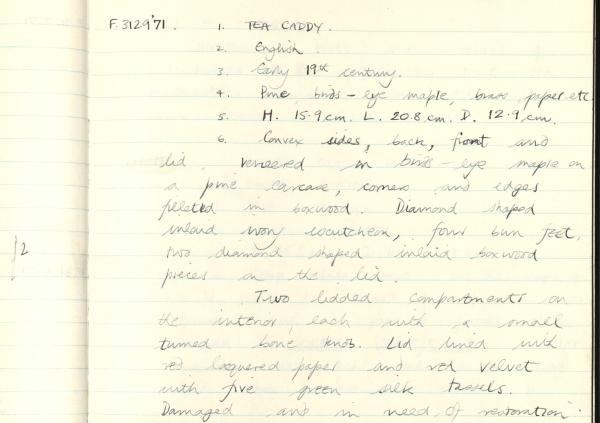 F.3129'71. 1. TEA CADDY.
2. English
3. Early 19th century.
4. Pine, birds-eye maple, brass, paper etc.
5. H. 15.9cm. L. 20.8cm. D. 12.9cm.
6. Convex sides, back, front and
lid, veneered in birds-eye maple on
a pine carcase, corners and edges
filleted in boxwood. Diamond shaped
inlaid ivory escutcheon, four bun feet,
two diamond shaped inlaid boxwood
pieces on the lid.
Two lidded compartments on
the interior, each with a small
turned bone knob. Lid lined with
red lacquered paper and red velvet
with five green silk tassels.
Damaged and in need of restoration.